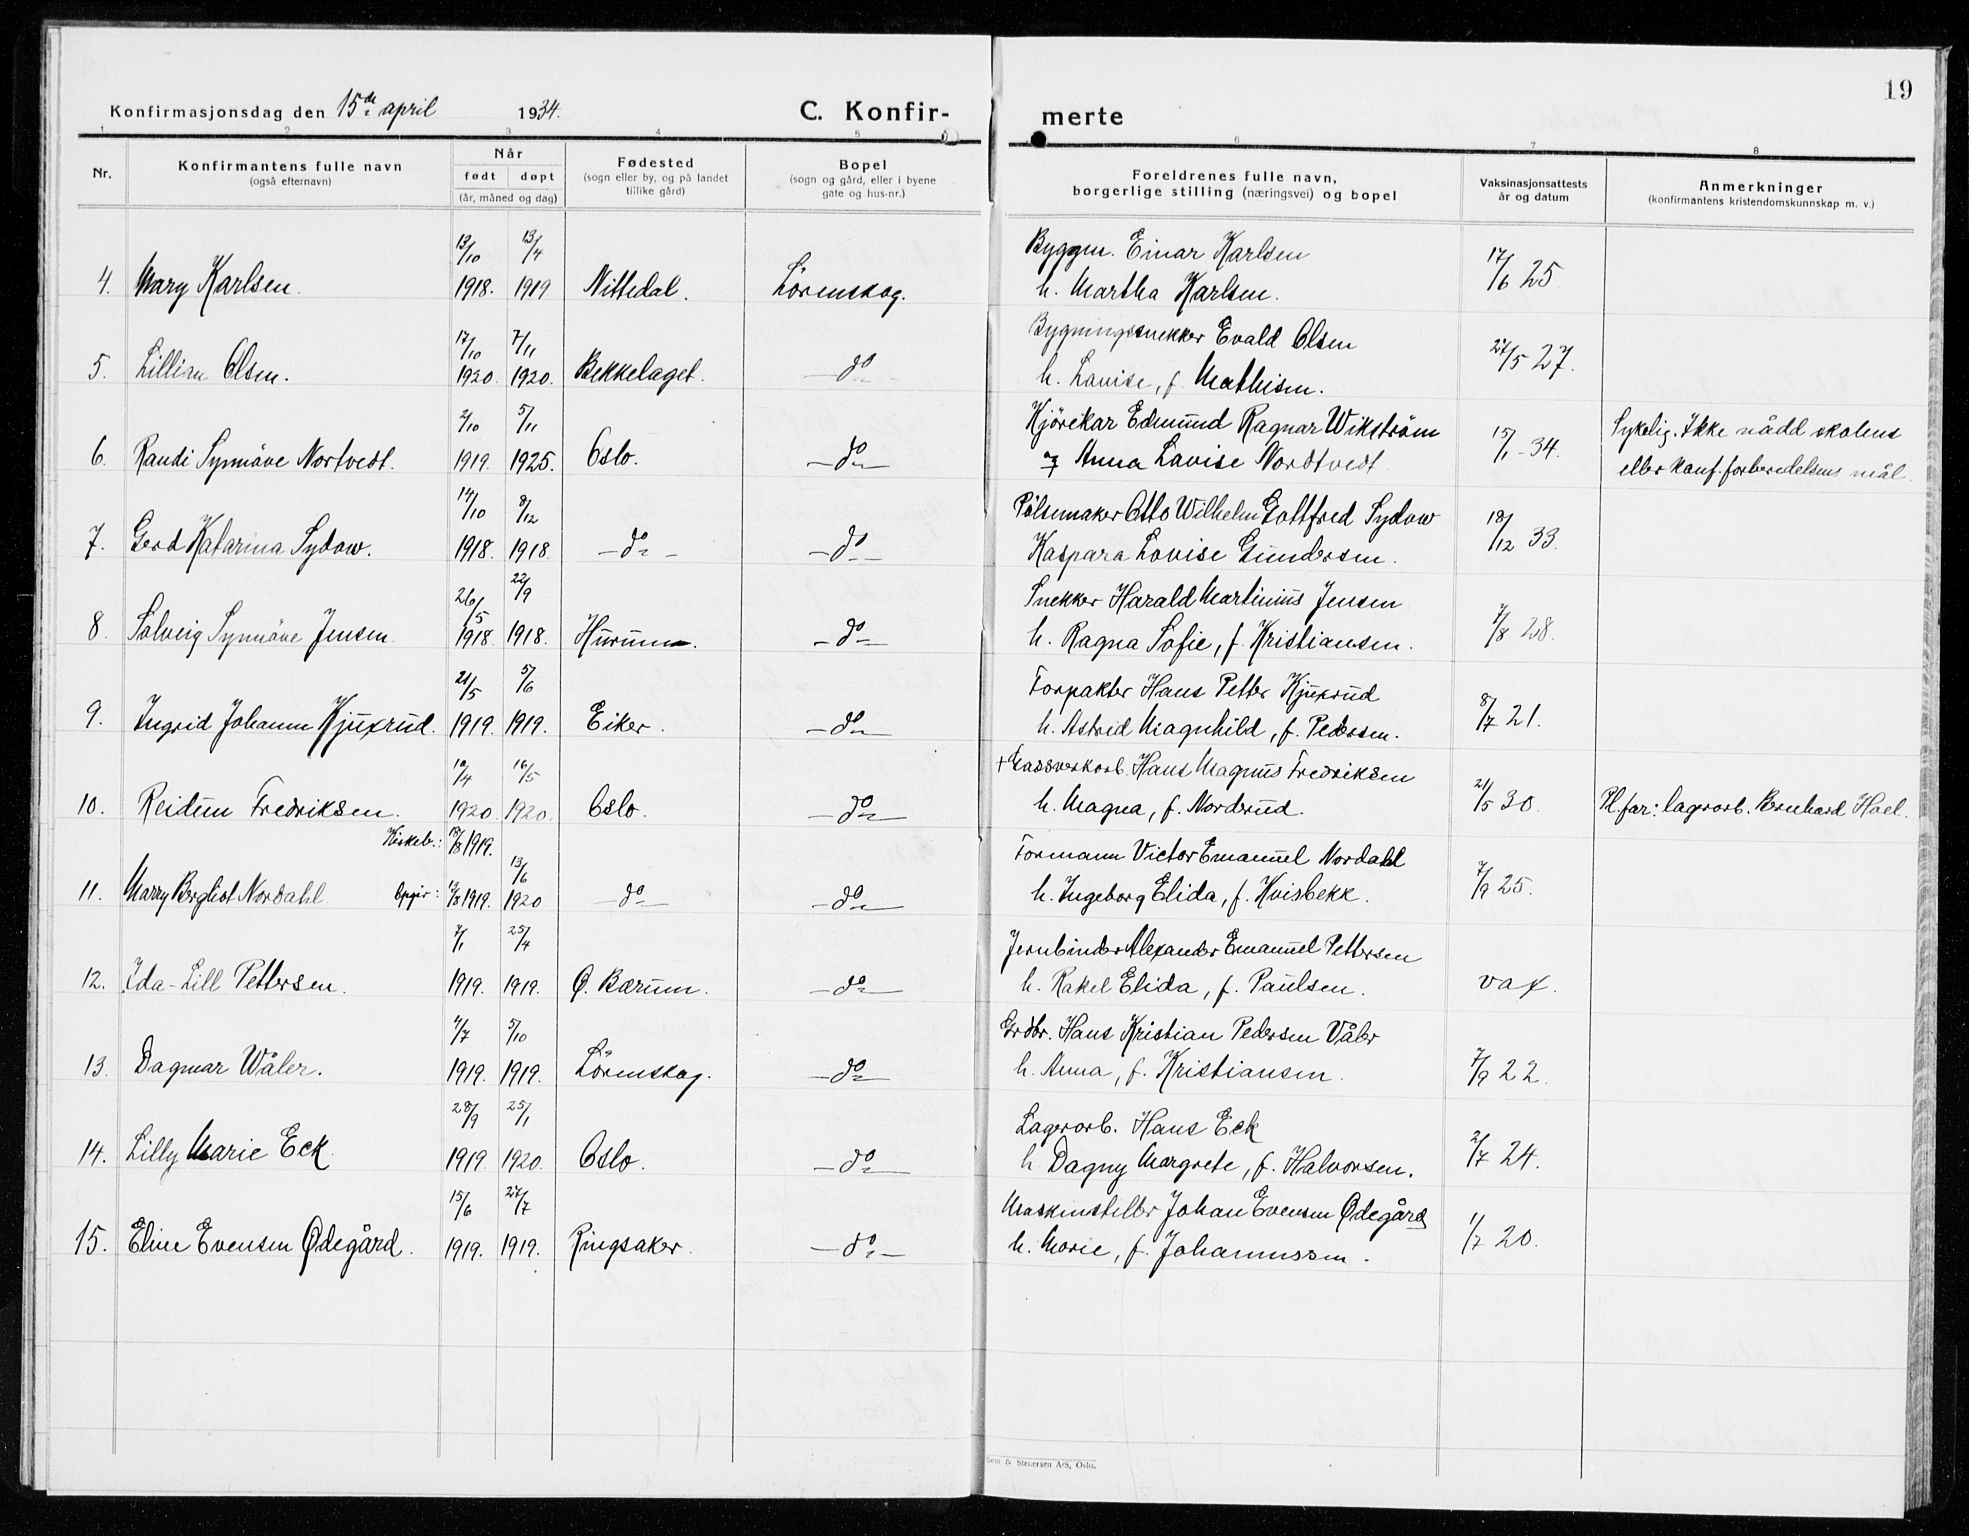 19
Konfirmasjonsdag den 15de april 1934. C. Konfir- merte
1 2 3 4 5 6 7 8
Nr. Konfirmantens fulle navn (også efternavn) Når født døpt (år, måned og dag) Fødested (sogn eller by, og på landet tillike gård) Bopel (sogn og gård, eller i byene gate og hus-nr.) Foreldrenes fulle navn, borgerlige stilling (næringsvei) og bopel Vaksinasjonsattests år og datum Anmerkninger (konfirmantens kristendomskunnskap m. v.)
13/10 13/4 Byggm. Einar Karlsen 17/6 25
4. Mary Karlsen. 1918. 1919 Nittedal. Lørenskog. h. Martha Karlsen.
17/10 7/11 Bygningssnekker Evald Olsen 27/5 27.
5. Lillian Olsen. 1920. 1920. Bekkelaget. — do — h. Lovise, f. Mathisen.
2/10 5/11 Kjørekar Edmund Ragnar Wikström 15/1 - 34. Sykelig. Ikke nådd skolens
6. Randi Synnöve Nortvedt. 1919. 1925. Oslo. — do — og Anna Lovise Nordtvedt eller konf.forberedelsens mål.
14/10 8/12 Pölsemaker Otto Wilhelm Gottfred Sydow 18/12 33.
7. Gerd Katarina Sydow. 1918. 1918. — do — — do — Kaspara Lovise Gundersen.
26/5 22/9 Snekker Harald Martinius Jensen 7/8 28.
8. Solveig Synnöve Jensen 1918. 1918. Hurum. — do — h. Ragna Sofie, f. Kristiansen.
21/5 5/6 Forpakter Hans Petter Kjuxrud 8/7 21.
9. Ingrid Johanne Kjuxrud. 1919. 1919. Eiker. — do — h. Astrid Magnhild, f. Pedersen.
10/4 16/5 + Gassverkarb. Hans Magnus Fredriksen 21/5 30.
10. Reidun Fredriksen. 1920. 1920. Oslo. — do — h. Magna, f. Norderud. Pl.far: lagerarb. Bernhard Hoel.
Kirkeb.: 1919. 13/6 Formann Victor Emanuel Nordahl 7/9 25.
11. Marry Bergliot Nordahl Opgir: 1919. 1920 — do — — do — h. Ingeborg Elida, f. Kvisbekk.
7/1 25/4 Jernbinder Alexander Emanuel Pettersen
12. Ida-Lill Pettersen. 1919. 1919. Ø. Bærum. — do — h. Rakel Elida, f. Paulsen. vax.
4/7 5/10 Grdbr. Hans Kristian Pedersen Våler 7/9 22.
13. Dagmar Wåler. 1919. 1919. Lörenskog. — do — h. Anna, f. Kristiansen.
28/9 25/1 Lagerarb. Hans Eck 2/7 24.
14. Lilly Marie Eck. 1919. 1920. Oslo. — do — h. Dagny Margrete, f. Halvorsen.
15/6 27/7 Maskinstiller Johan Evensen Ødegård 1/7 20.
15. Eline Evensen Ødegård. 1919. 1919. Ringsaker. — do — h. Marie, f. Johannessen.
& Stenersen A/S, Oslo.